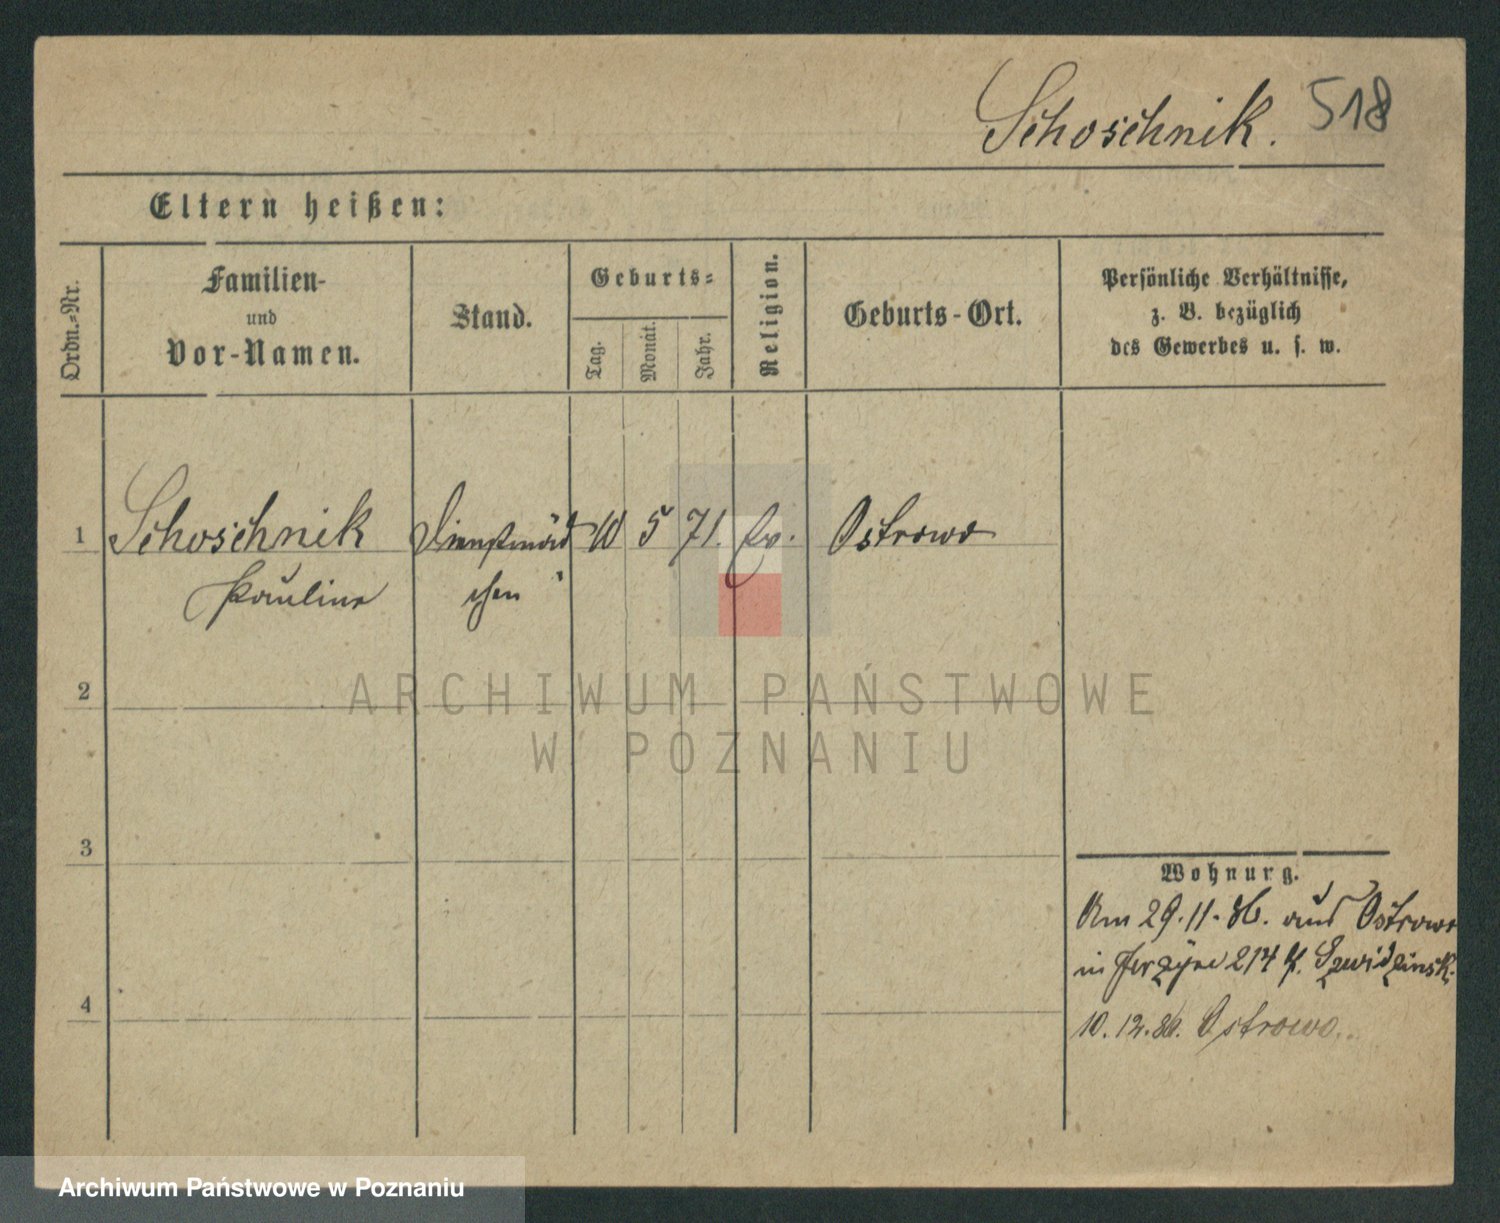 Schoschnik. 518
Eltern heißen:
Ordn.-Nr.
Familien-
und
Vor-Namen.
Stand.
Geburts-
Tag.
Monat.
Jahr.
Religion.
Geburts-Ort.
Persönliche Verhältnisse,
z. B. bezüglich
des Gewerbes u. s. w.
1 Schoschnik Dienstmäd 10 5 71. Ev. Ostrowo
Pauline chen
2
3
4
Wohnung.
Am 29.11.86. aus Ostrowo
in Jerzyce 214
10.12.86. Ostrowo.
ARCHIWUM PAŃSTWOWE
W POZNANIU
Archiwum Państwowe w Poznaniu